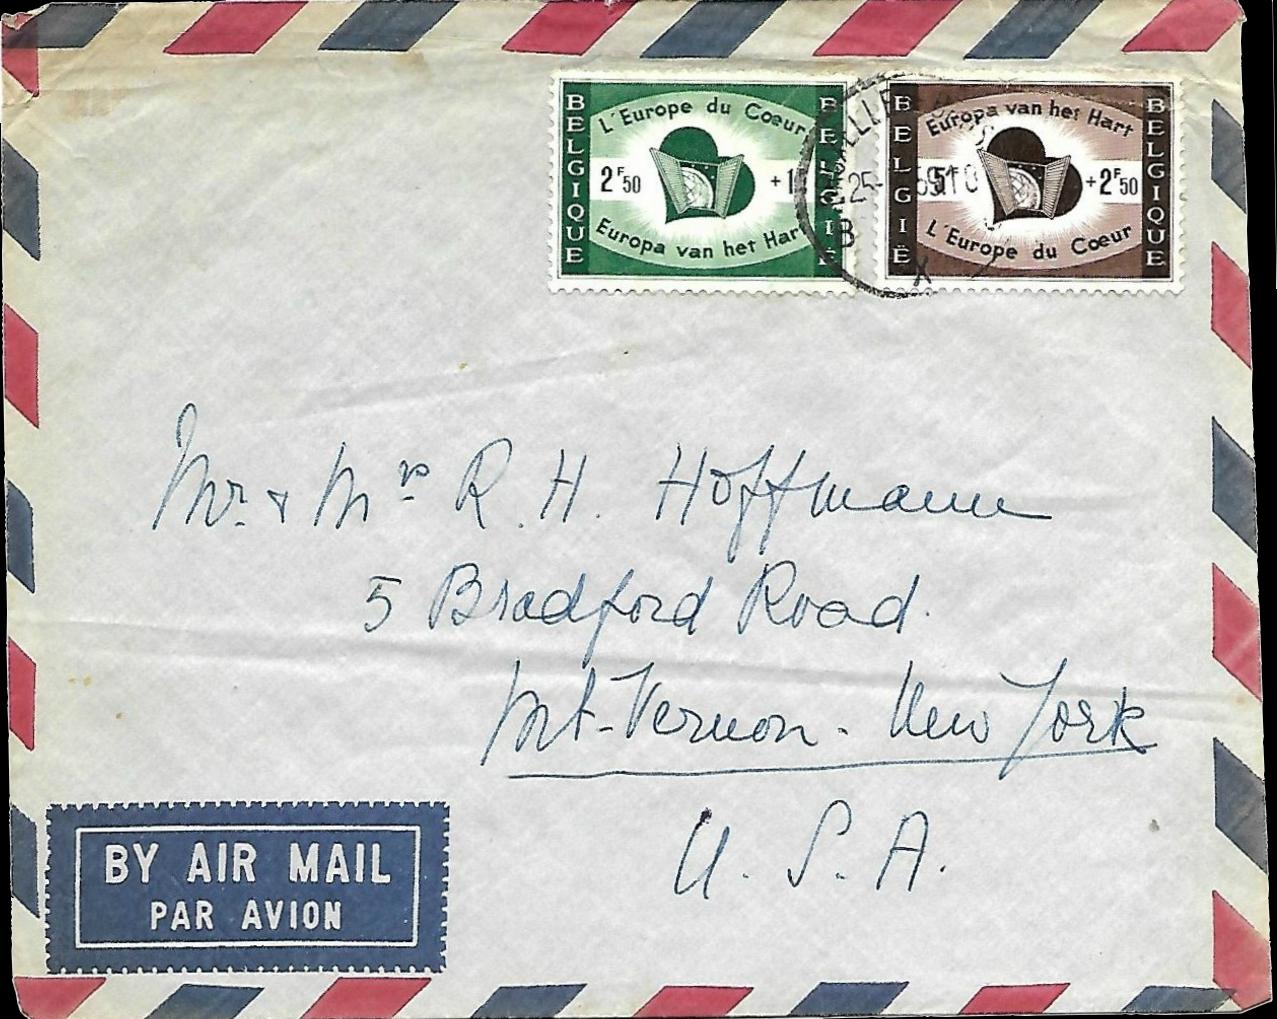 BELGIQUE L'Europe du Coeur BELGIË
2F50 +1
Europa van het Hart
BELGIË Europa van het Hart BELGIQUE
5F +2F50
L'Europe du Coeur
25- 59 10
B X
Mr. & Mrs R. H. Hoffmann
5 Bradford Road.
Mt-Vernon. New York
U. S. A.
BY AIR MAIL
PAR AVION